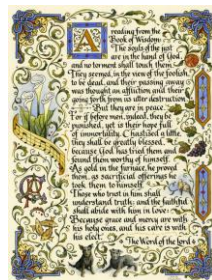 A reading from the
Book of Wisdom
The souls of the just
are in the hand of God,
and no torment shall touch them.
They seemed, in the view of the foolish
to be dead; and their passing away
was thought an affliction and their
going forth from us utter destruction
But they are in peace.
For if before men, indeed, they be
punished, yet is their hope full
of immortality. Chastised a little,
they shall be greatly blessed,
because God has tried them and
found them worthy of himself.
As gold in the furnace, he proved
them, as sacrificial offerings he
took them to himself.
Those who trust in him shall
understand truth; and the faithful
shall abide with him in love:
Because grace and mercy are with
his holy ones, and his care is with
his elect.
The Word of the Lord